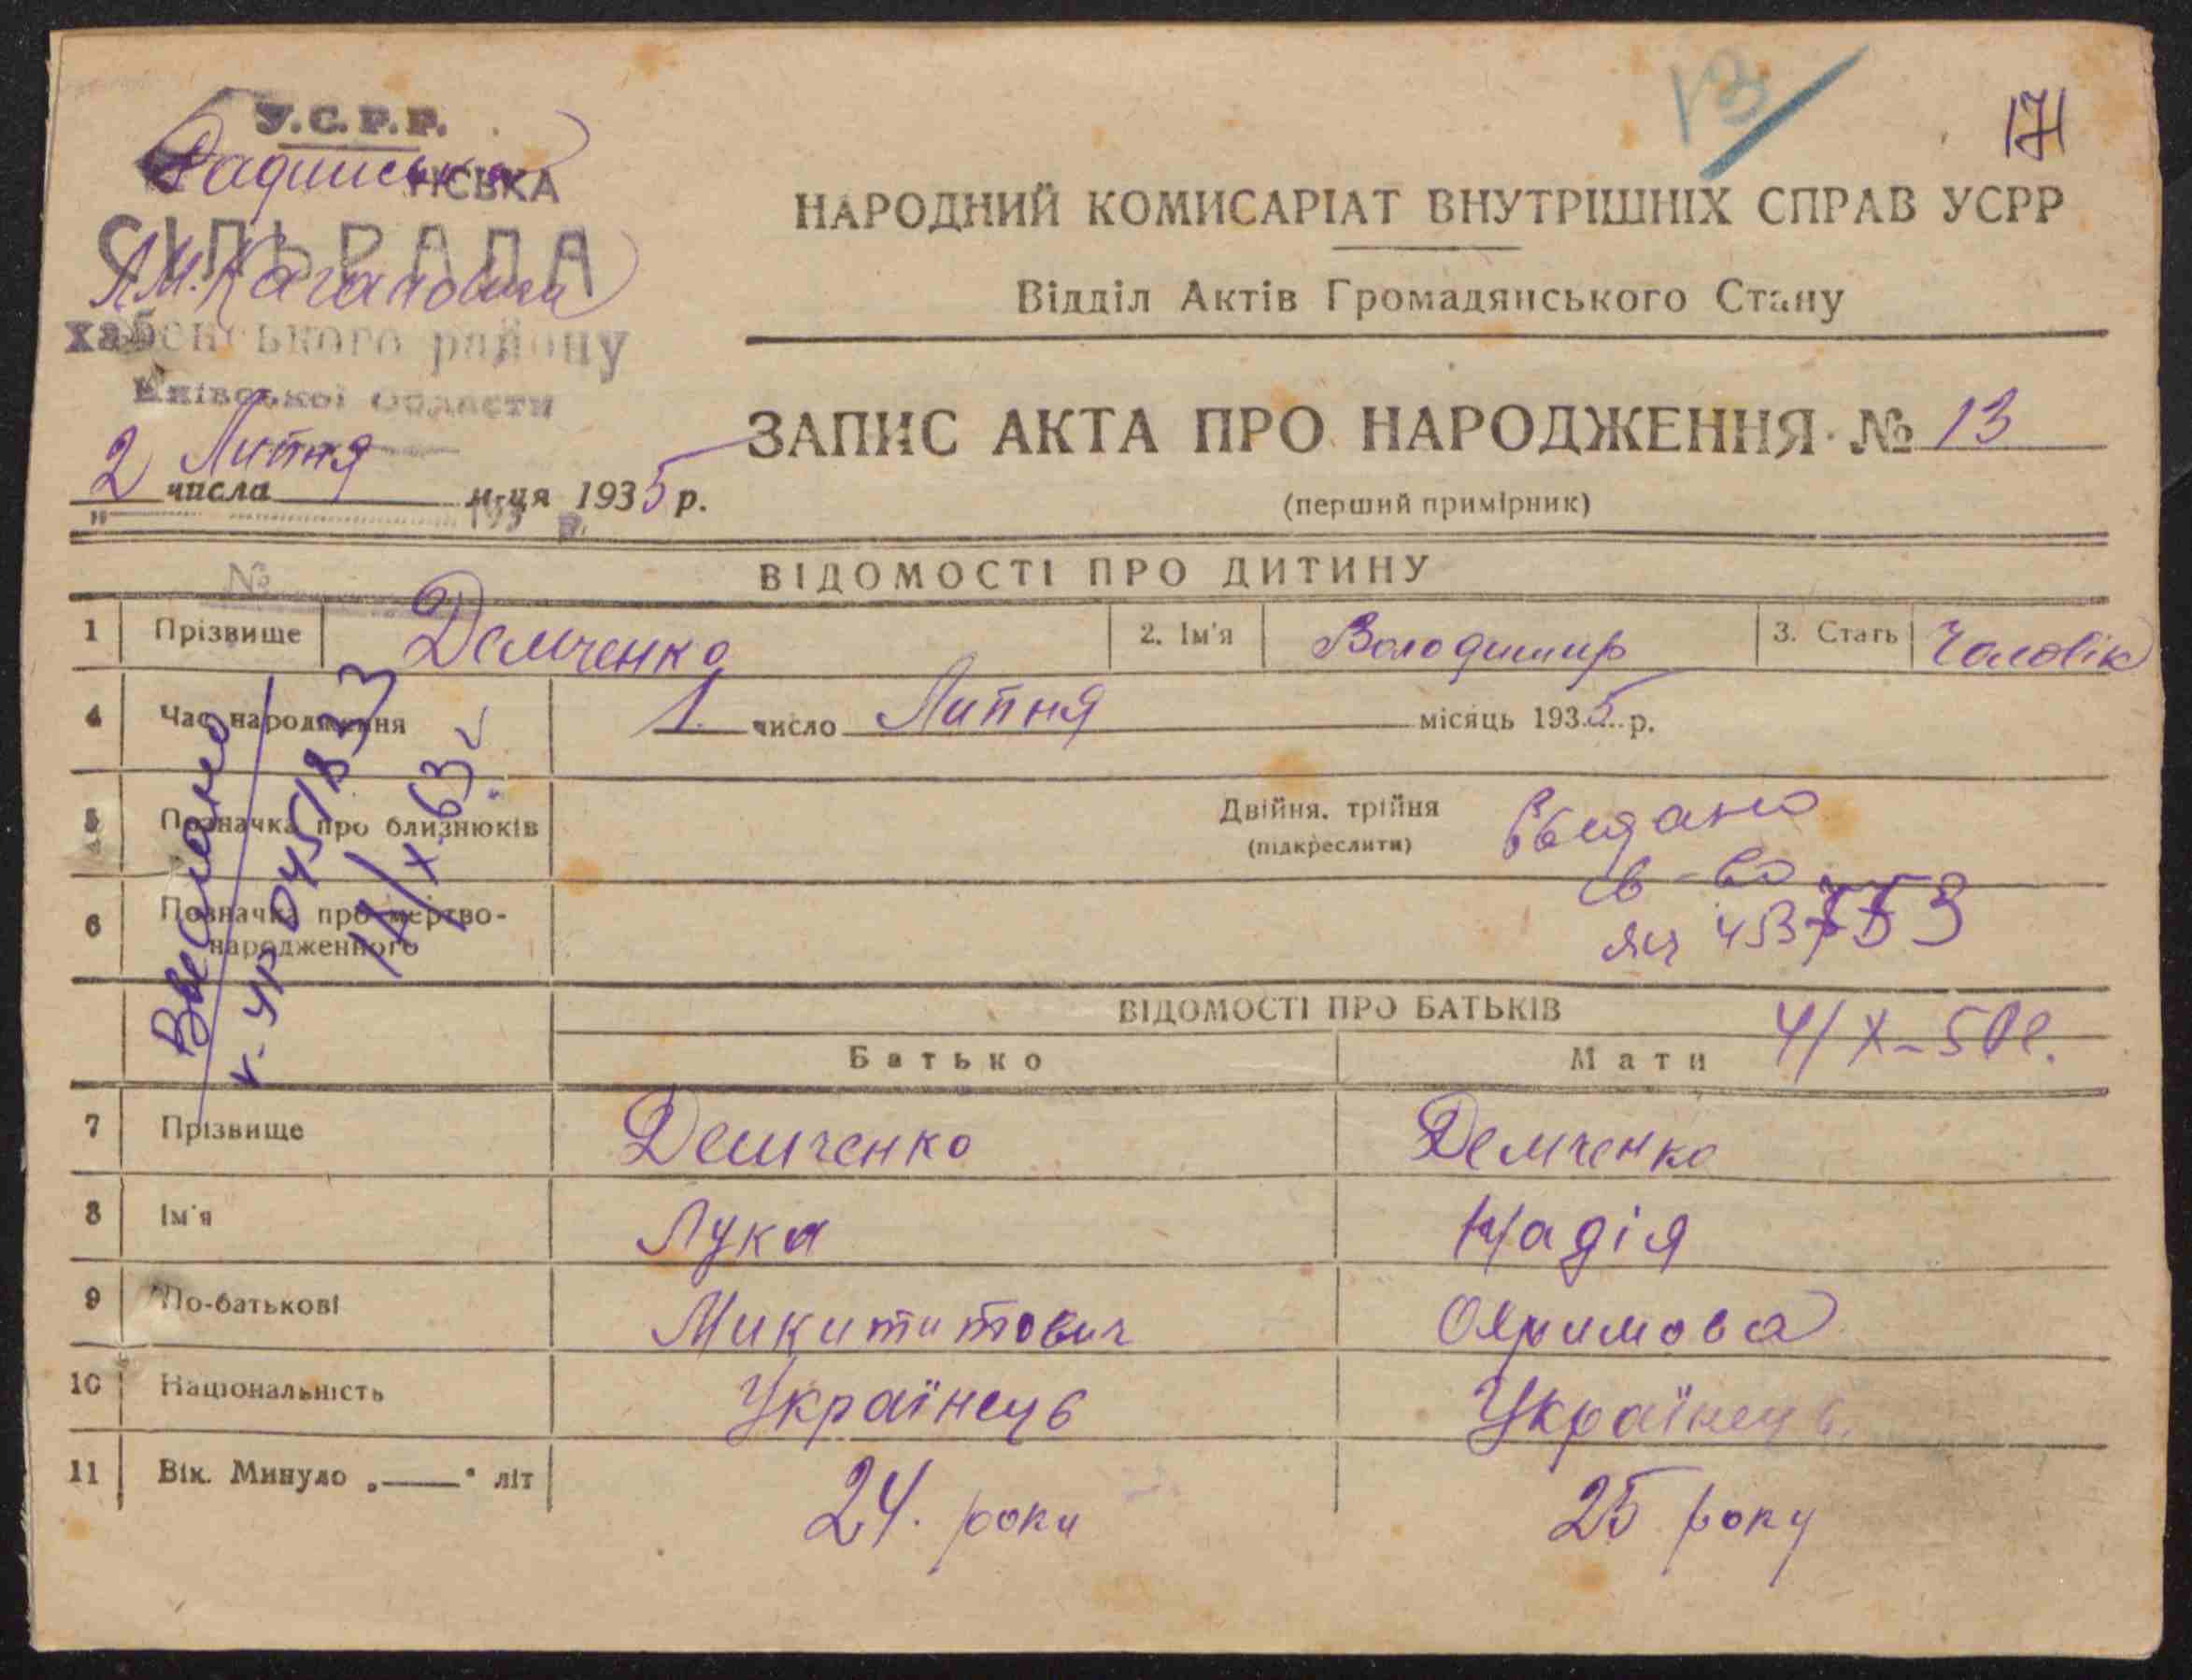 13
171
У.С.Р.Р.
НСЬКА
СІЛЬРАДА
Л.М. Кагановича
хабенського району
Київської области
2 числа Липня м-ця 1935 р.
" 193 р.
№
НАРОДНИЙ КОМИСАРІАТ ВНУТРІШНІХ СПРАВ УСРР
Відділ Актів Громадянського Стану
ЗАПИС АКТА ПРО НАРОДЖЕННЯ № 13
(перший примірник)
ВІДОМОСТІ ПРО ДИТИНУ
1 Прізвище Демченко 2. Ім'я Володимир 3. Стать Чоловік
4 Час народження 1. число Липня місяць 1935 р.
5 Позначка про близнюків Двійня, трійня
(підкреслити)
6 Позначка про мертво-
народженного
Выдано
св-во
453753
4/X-50г.
Выслано
УР 0451833
14/X.63
ВІДОМОСТІ ПРО БАТЬКІВ
Батько Мати
7 Прізвище Демченко Демченко
8 Ім'я Лука Надія
9 По-батькові Микититович Охримова
10 Національність Українець Українець
11 Вік. Минуло „——" літ 24. роки 25 року